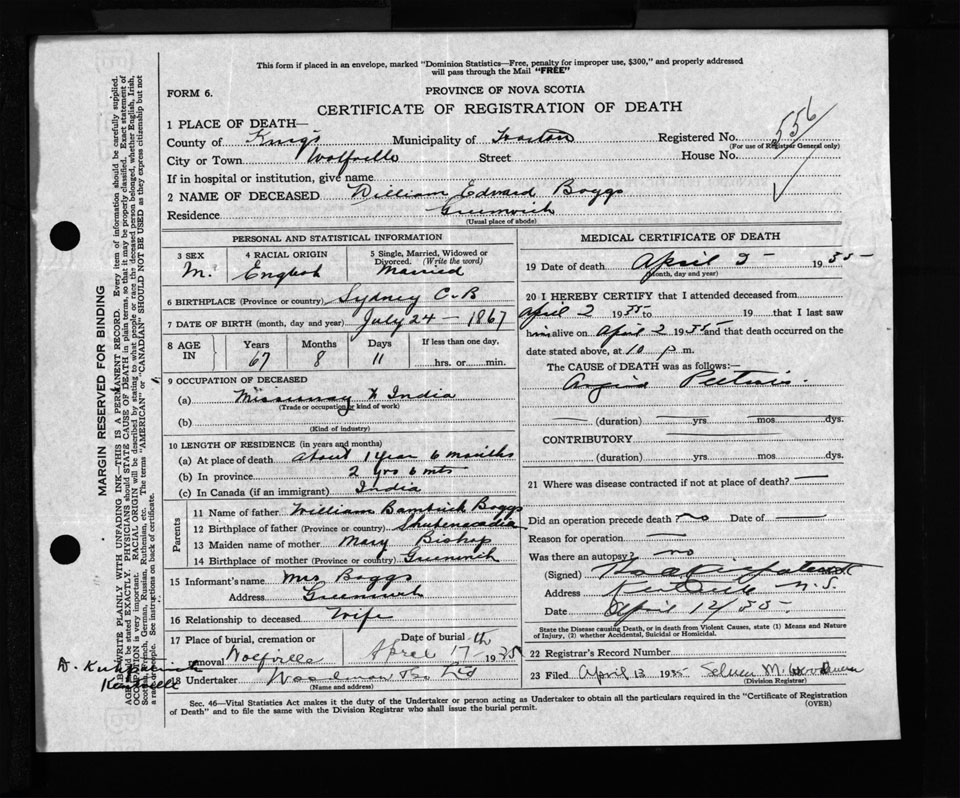 This form if placed in an envelope, marked "Dominion Statistics—Free, penalty for improper use, $300," and properly addressed
will pass through the Mail "FREE"
FORM 6.
PROVINCE OF NOVA SCOTIA
CERTIFICATE OF REGISTRATION OF DEATH
1 PLACE OF DEATH—
County of King's Municipality of Registered No. 556
(For use of Registrar General only)
City or Town Wolfville Street House No.
If in hospital or institution, give name
2 NAME OF DECEASED William Edward Boggs
Residence Greenwich
(Usual place of abode)
PERSONAL AND STATISTICAL INFORMATION
3 SEX 4 RACIAL ORIGIN 5 Single, Married, Widowed or Divorced. (Write the word)
M. English Married
6 BIRTHPLACE (Province or country) Sydney C.B
7 DATE OF BIRTH (month, day and year) July 24 – 1867
8 AGE IN Years Months Days If less than one day,
67 8 11 hrs. or min.
9 OCCUPATION OF DECEASED
(a) Missionary India
(Trade or occupation or kind of work)
(b)
(Kind of industry)
10 LENGTH OF RESIDENCE (in years and months)
(a) At place of death About 1 year 6 months
(b) In province 2 yrs 6 mts
(c) In Canada (if an immigrant) India
Parents
11 Name of father William Boggs
12 Birthplace of father (Province or country) Shubenacadia
13 Maiden name of mother Mary Bishop
14 Birthplace of mother (Province or country) Greenwich
15 Informant's name Mrs Boggs
Address Greenwich
16 Relationship to deceased Wife
17 Place of burial, cremation or removal Wolfville Date of burial April 17th 1935
18 Undertaker Woodman Ltd
(Name and address)
MEDICAL CERTIFICATE OF DEATH
19 Date of death April 2 – 1935
(month, day and year)
20 I HEREBY CERTIFY that I attended deceased from
April 2 1935 to 19 that I last saw
him alive on April 2 1935 and that death occurred on
date stated above, at 10 p m.
The CAUSE of DEATH was as follows:—
Angina Pectoris.
(duration) yrs mos dys.
CONTRIBUTORY
(duration) yrs mos dys.
21 Where was disease contracted if not at place of death?
Did an operation precede death? no Date of
Reason for operation
Was there an autopsy? no
(Signed)
Address N.S.
Date April 12/35
State the Disease causing Death, or in Death from Violent Causes, state (1) Means and Nature
of Injury, (2) whether Accidental, Suicidal or Homicidal.
22 Registrar's Record Number
23 Filed April 13 1935 M.
(Division Registrar)
Sec. 46—Vital Statistics Act makes it the duty of the Undertaker or person acting as Undertaker to obtain all the particulars required in the "Certificate of Registration
of Death" and to file the same with the Division Registrar who shall issue the burial permit.
(OVER)
MARGIN RESERVED FOR BINDING
N.B. WRITE PLAINLY WITH UNFADING INK—THIS IS A PERMANENT RECORD. Every item of information should be carefully supplied.
AGE should be stated EXACTLY. PHYSICIANS should STATE CAUSE OF DEATH in plain terms, so that it may be properly classified. Exact statement of
OCCUPATION is very important. RACIAL ORIGIN will be described by stating to what people or race the deceased person belonged, whether English, Irish,
Scotch, French, German, Russian, Ruthenian, etc. The terms "AMERICAN" or "CANADIAN" SHOULD NOT BE USED as they express citizenship but not
a race or people. See instructions on back of certificate.
Kentville